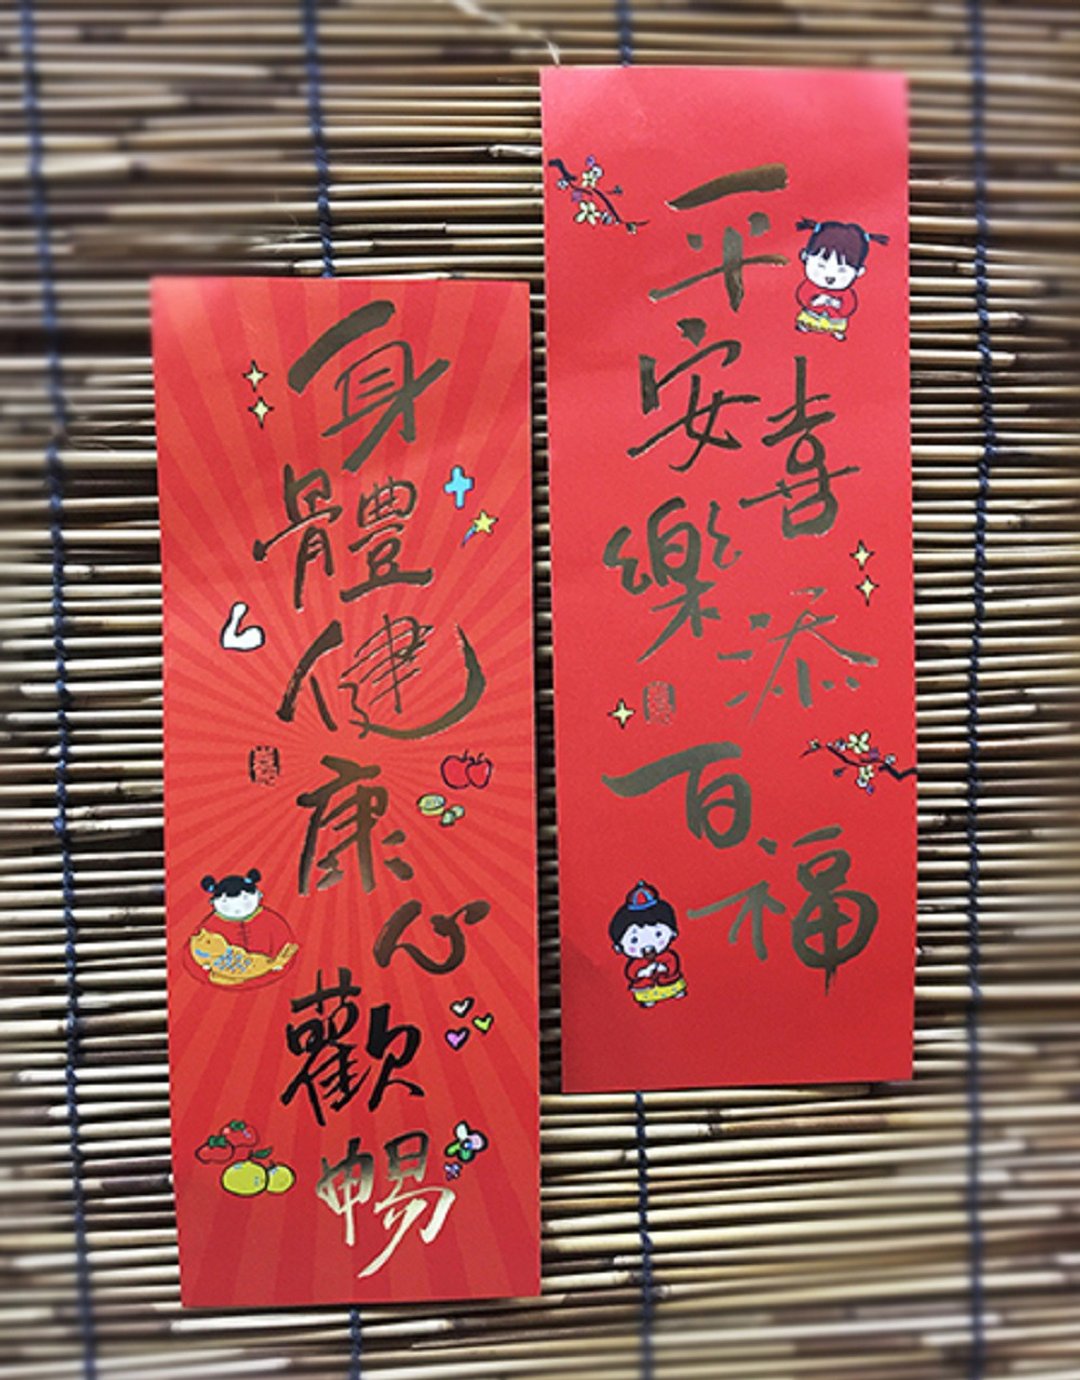 平安喜樂添百福
身體健康心歡暢